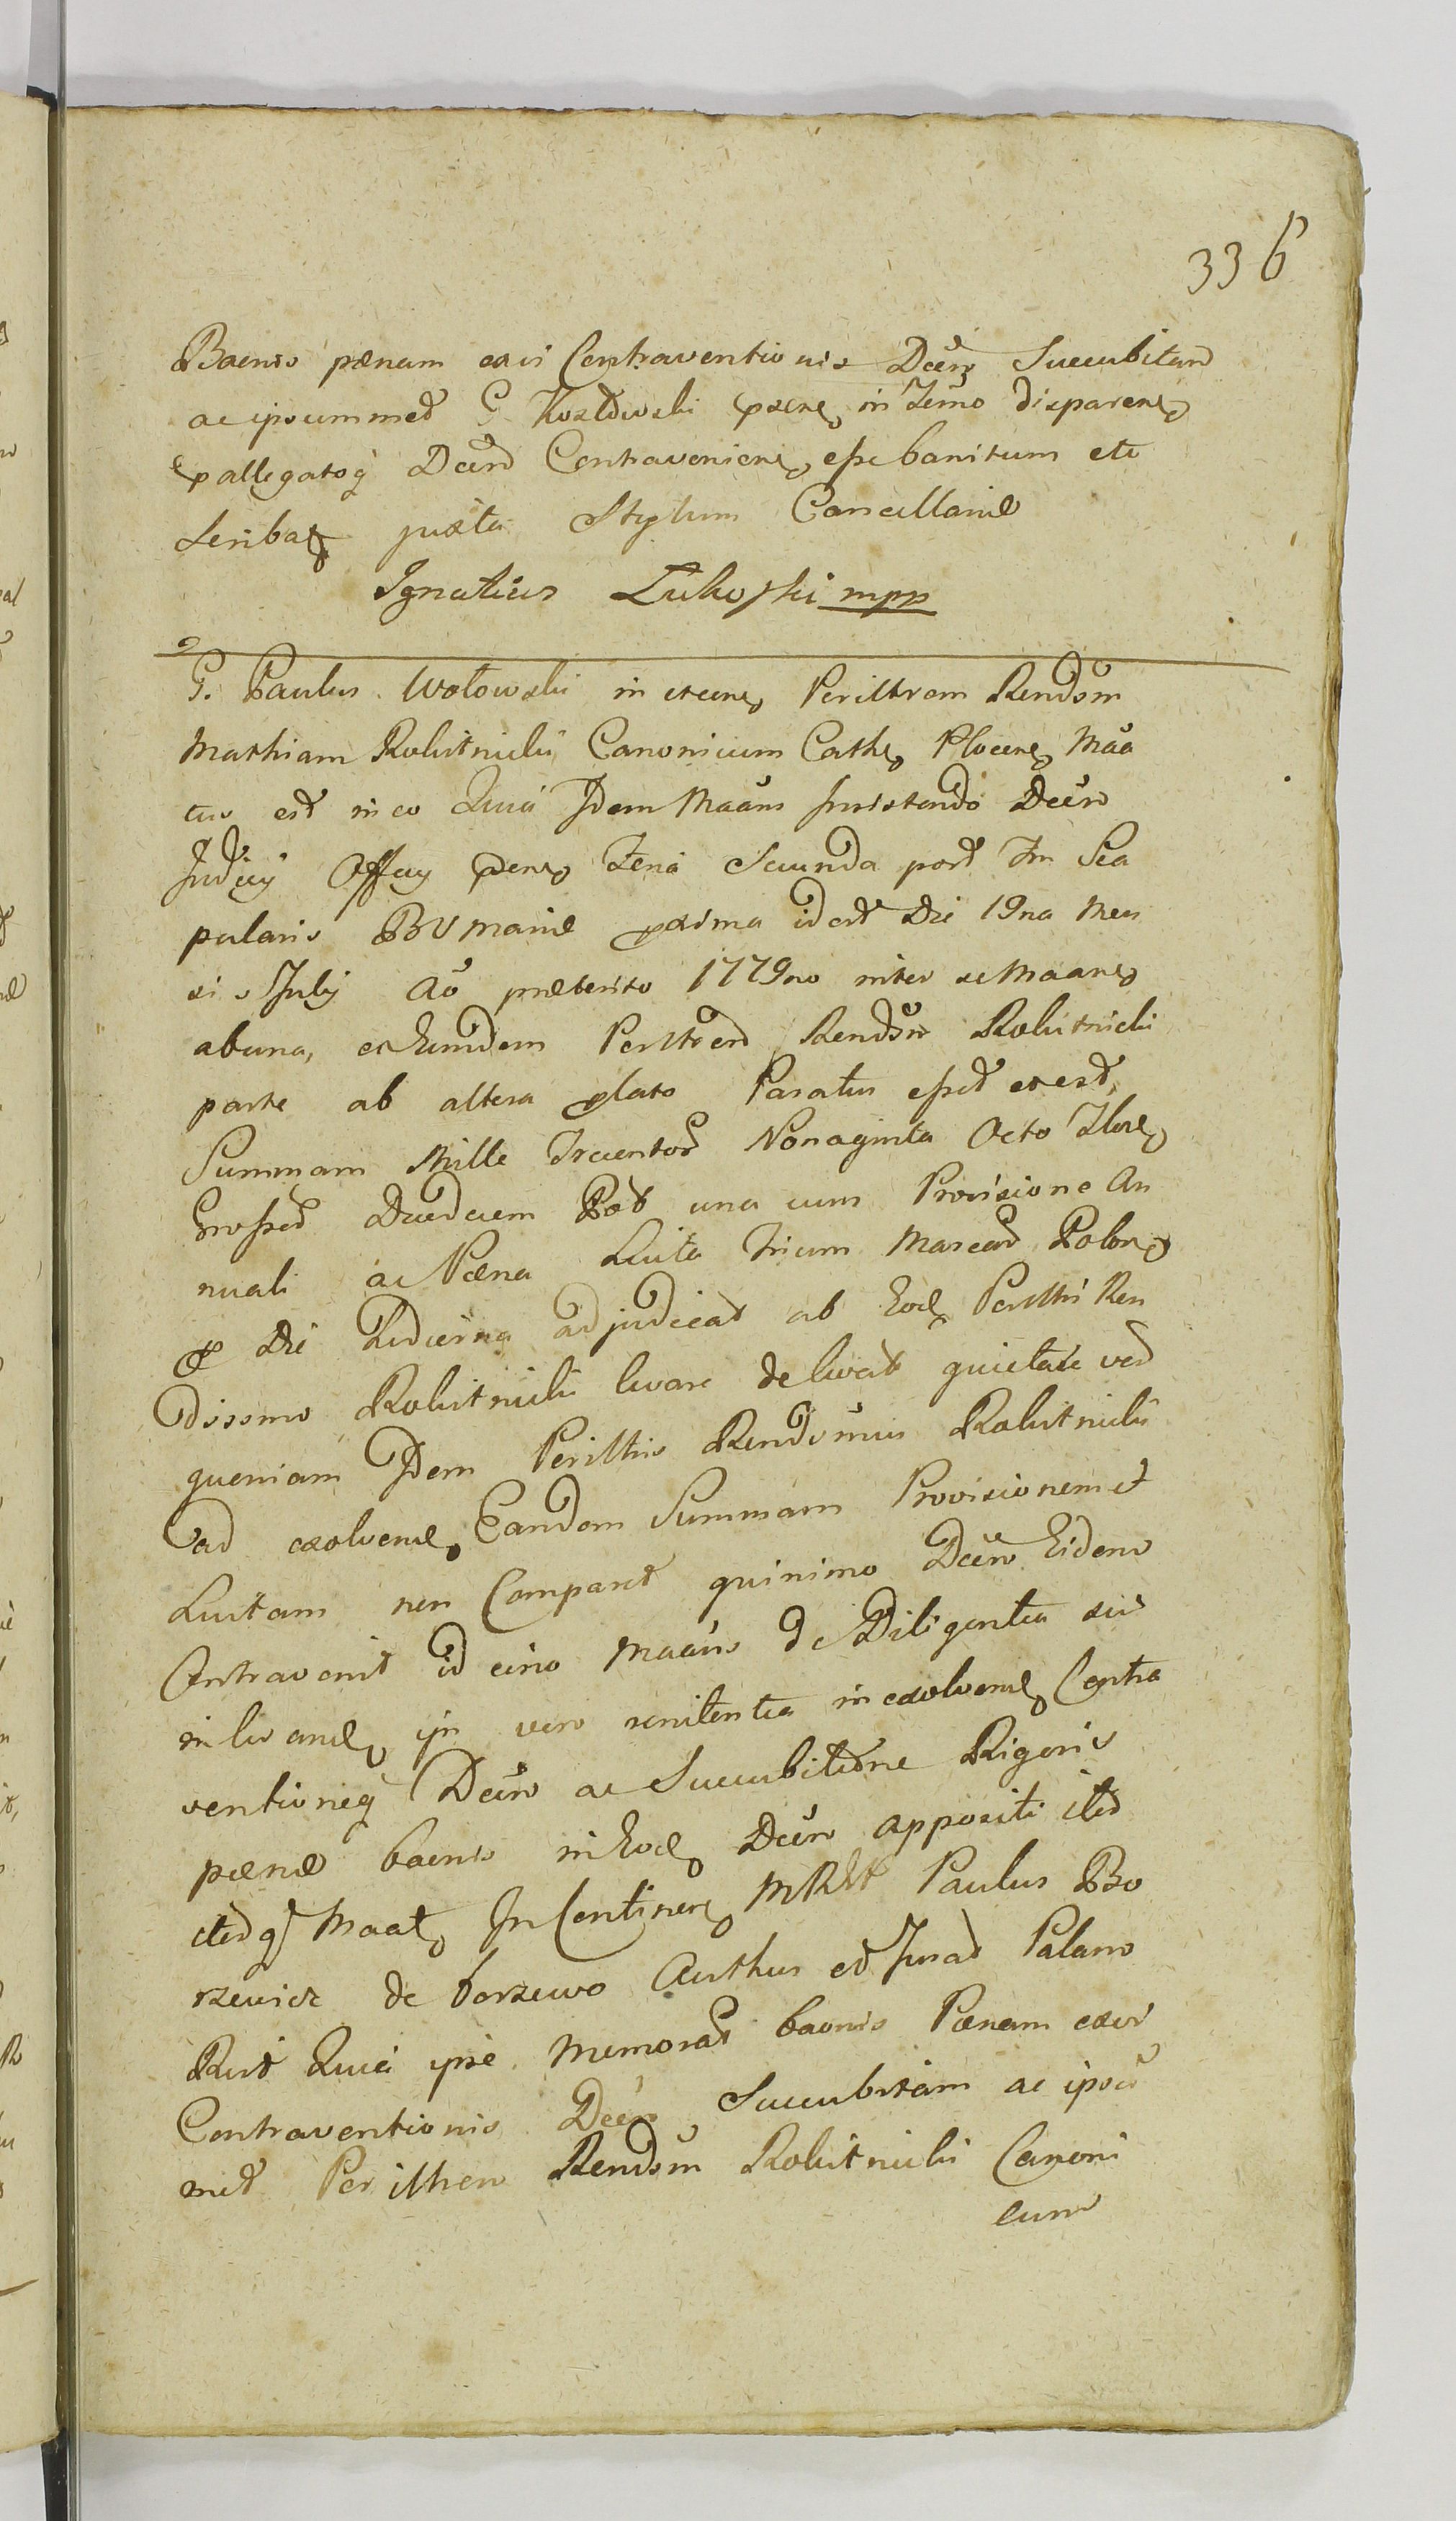 336
Baenis pænam ex vi Contraventionis Decrê Succubitam
ac ipsummet G. Kozłowski psene in Termô disparen
pallegatoq̃ Decrô Contravenien esse banitum etc
Scribat juxta Stylum Cancellariæ
Ignatius Lukoski mpp
G. Paulus Wołowski in et cone Perilltrem Rendsm
Mathiam Rokitnicki Canonicum Cathe Plocens Mãa
tus est in eo Quia Idem Maãns insistendo Decrô
Judicij Officij psene Termô Secunda post Fm Sca
pularis BV Mariæ pxima id est Die 19na Men
sis Julij Aõ præterito 1779no inter se Maane
ab una, et Eundem Perlltrem Rendsm Rokitnicki
parte ab altera plato Paratus esset et est
Summam Mille Trecentor Nonaginta Octo Flore
Grossos Duodecim Pol una cum Provisione An
nuali ac Pæna Luita Trium Marcar Polon
Die adjudicat ab Eode Perillri Ren
dissmo Rokitnicki levare delevat quietare vero
quoniam Idem Perilltris Rendsmus Rokitnicki
ad exolvend Eandem Summam Provisionem et
Luitam non Comparet quinimo Decrô Eidem
Contravenit id circo Maãns de Diligentia sui
in levand ipi vero renitentia in exolvend Contra
ventioneq̃ Decrô ac Succubitione Rigoris
pænæ baenis in Eode Decrô appositi iterũ
iterq̃ Maat In Continen MRlt Paulus Bo
rzewicz de Borzewo Authus et Jurat Palam
Rlt Quia ipse memorat baenis Pænam ex vi
Contraventionis Decrô Succubitam ac ipsũ
met Perillhem Rendsm Rokitnicki Canoni
cum